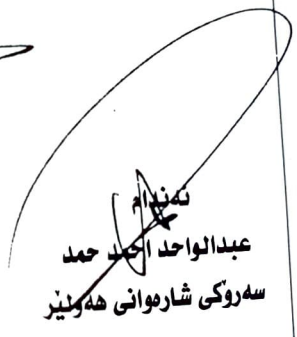 ئەندام
عبدالواحد احمد حمد
سەرۆکی شارەوانی هەولێر